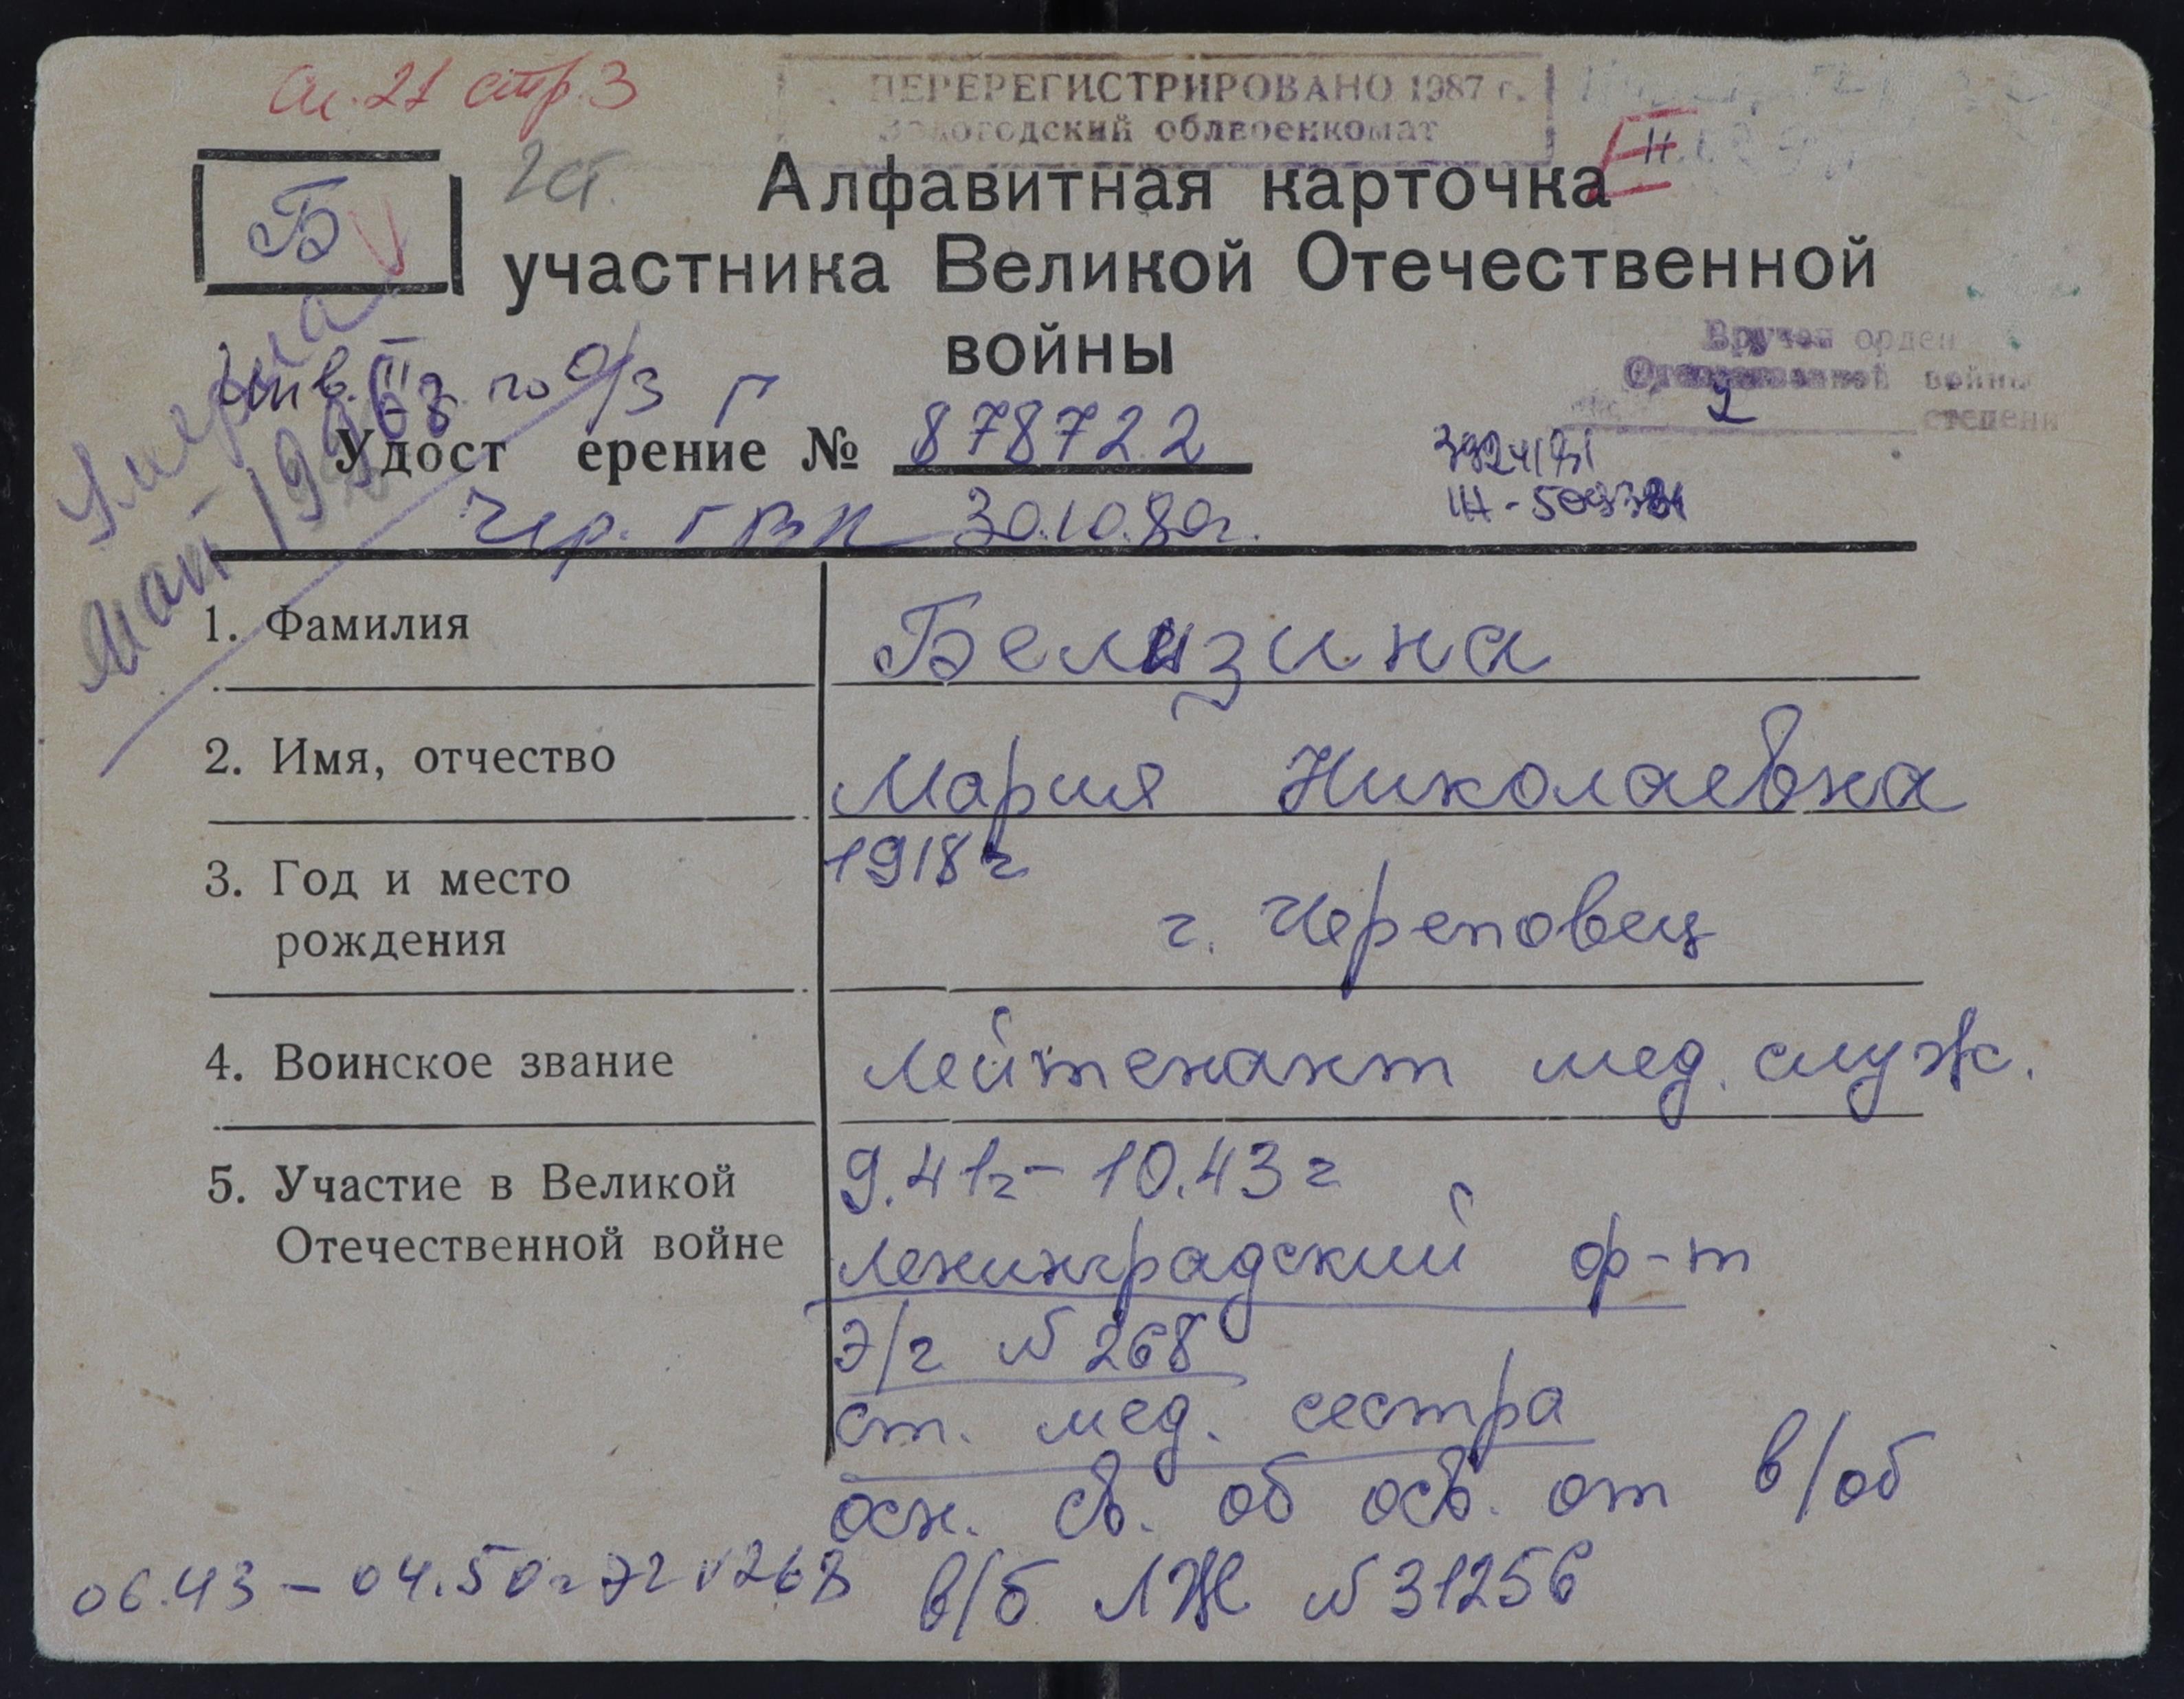 Сп. 21 стр. 3
ПЕРЕРЕГИСТРИРОВАНО 1987 г.
Вологодский облвоенкомат
Б
2 ст.
III
Алфавитная карточка
участника Великой Отечественной
войны
Вручен орден
Отечественной войны
2
степени
Инв. II гр. по о/з
Умерла
май
Г
Удост ерение № 878722
Чер. ГВК 30.10.80г.
1. Фамилия
Белизина
2. Имя, отчество
Мария Николаевна
3. Год и место
рождения
1918 г
г. Череповец
4. Воинское звание
Лейтенант мед. служ.
5. Участие в Великой
Отечественной войне
9.41г – 10.43 г
Ленинградский ф-т
Э/г № 268
ст. мед. сестра
осн. св. об осв. от в/об
06.43 – 04.50г ЭГ №268
в/б ЛЖ № 31256